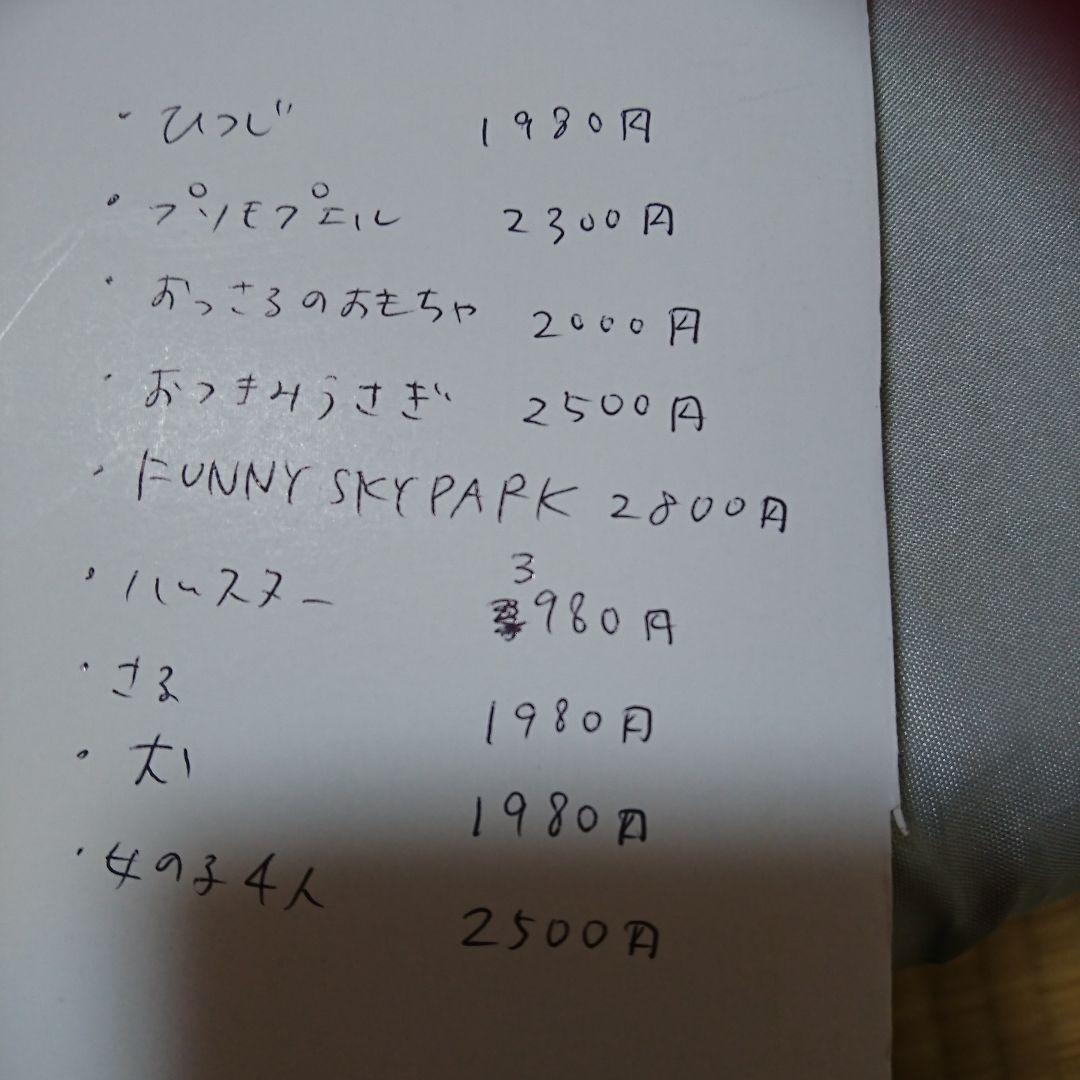 ・ひつじ 1980円
・プリモプエル 2300円
・おっさるのおもちゃ 2000円
・おつきみうさぎ 2500円
・FUNNY SKY PARK 2800円
・ハースター 3980円
・さる 1980円
・犬1 1980円
・女の子4人 2500円